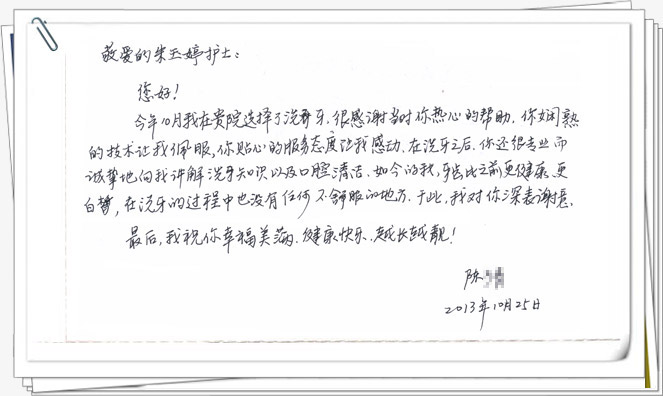 敬爱的朱玉婷护士：
您好！
今年10月我在贵院选择了洗牙，很感谢当时你热心的帮助，你娴熟
的技术让我佩服，你贴心的服务态度让我感动，在洗牙之后，你还很专业而
诚挚地向我讲解洗牙知识以及口腔清洁。如今的我，牙齿比之前更健康、更
白皙，在洗牙的过程中也没有任何不舒服的地方。于此，我对你深表谢意。
最后，我祝你幸福美满、健康快乐、越长越靓！
陈
2013年10月25日